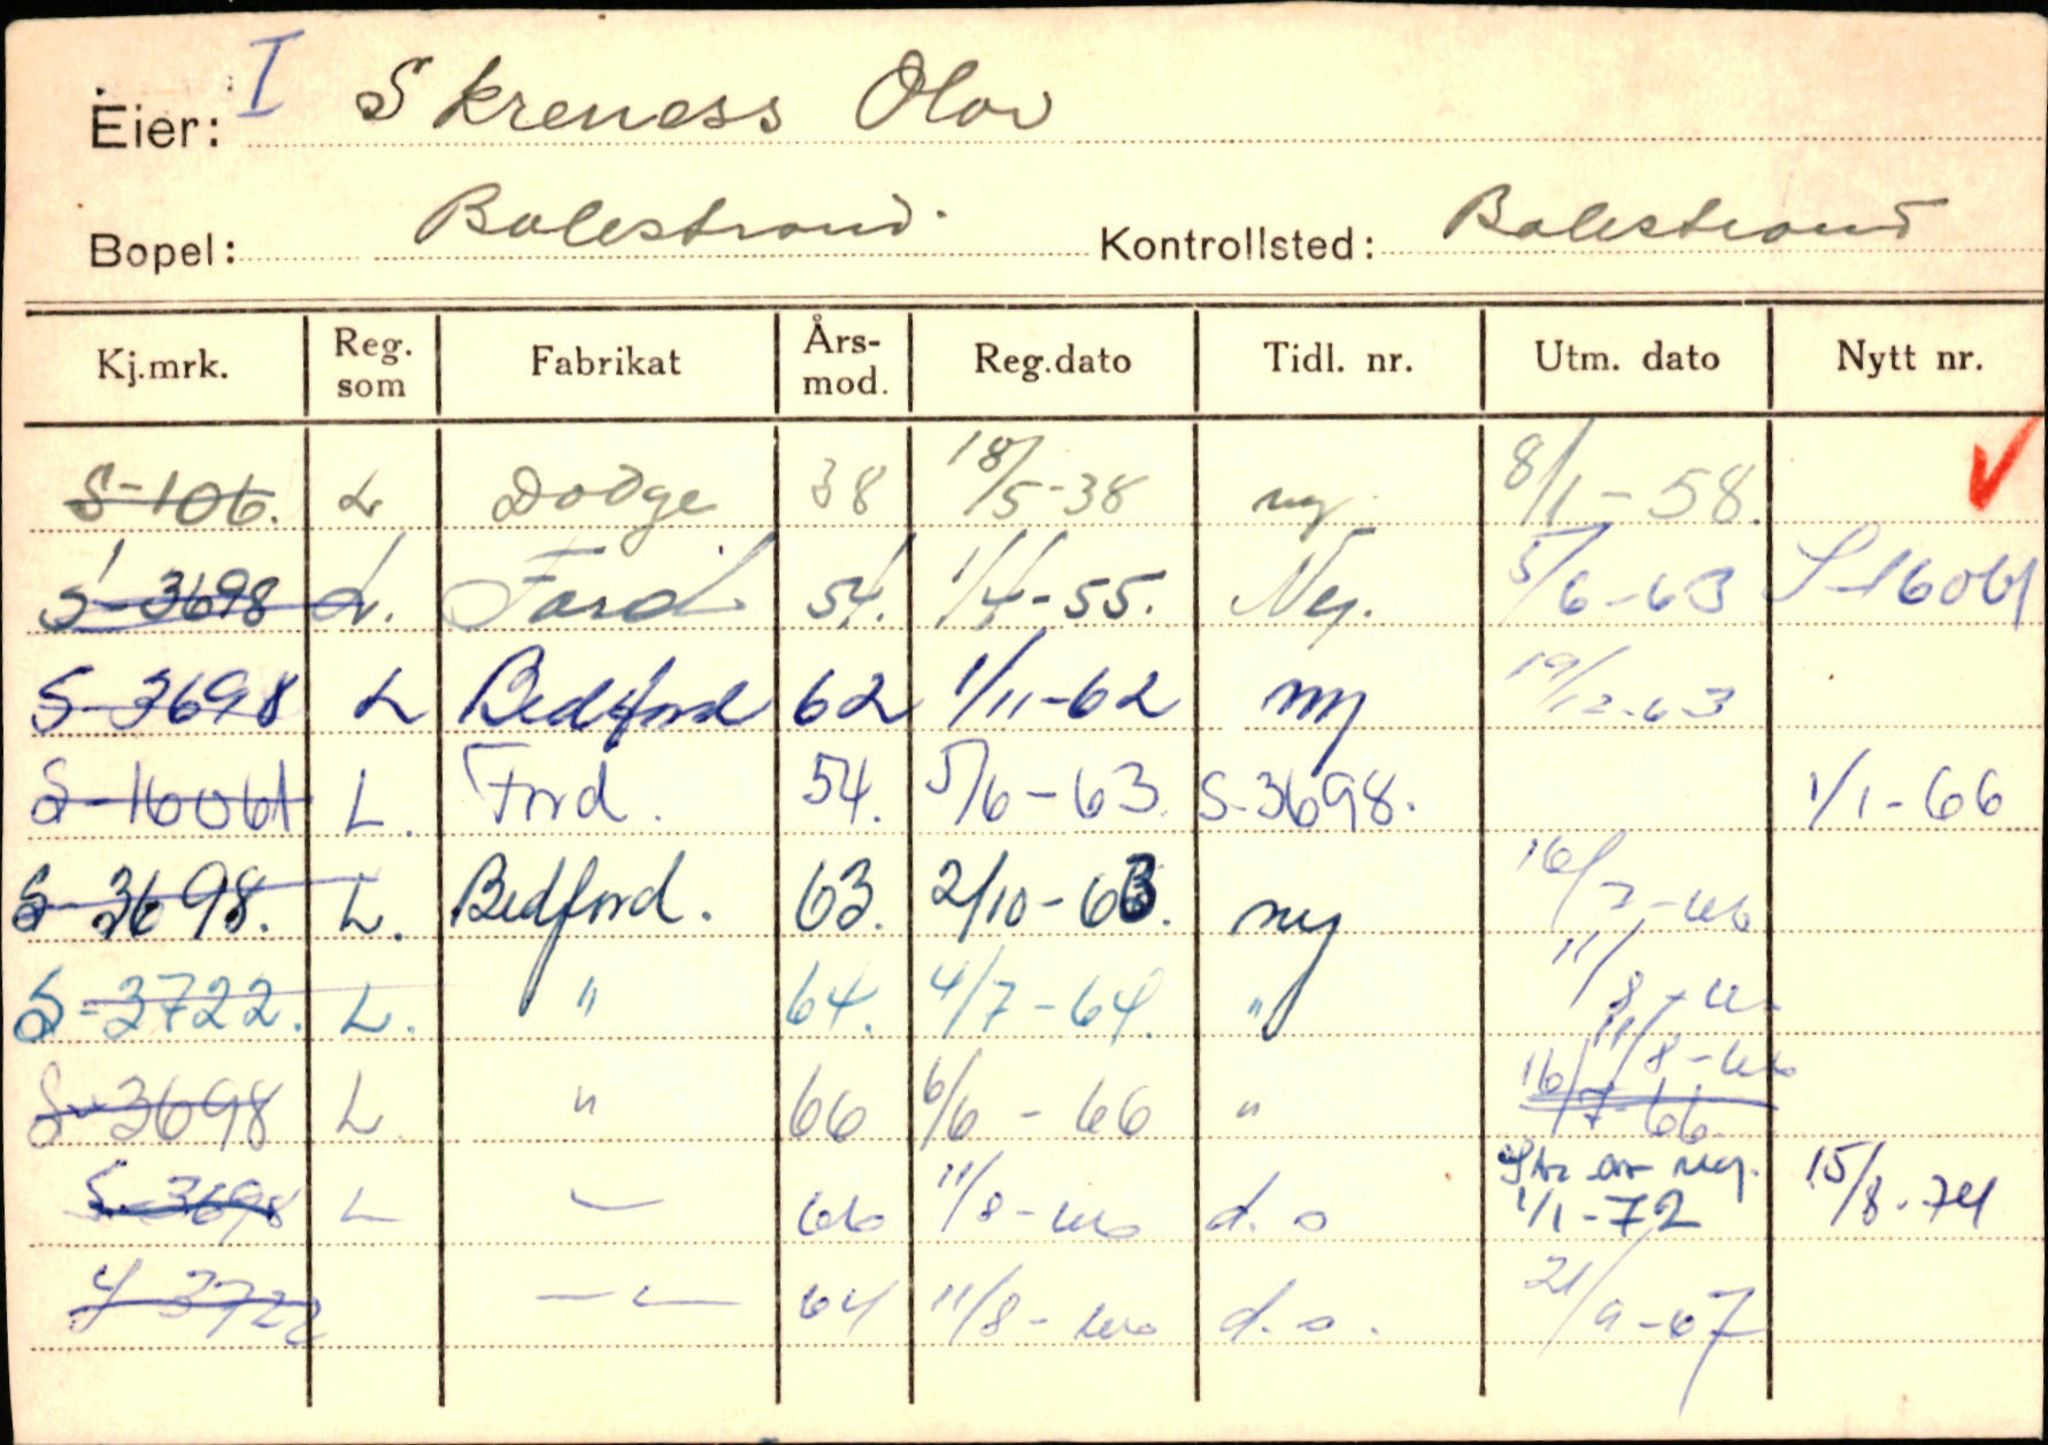 Eier: I Skreness Olav
Bopel: Balestrand Kontrollsted: Balestrand
Kj.mrk. Reg. som Fabrikat Års-mod. Reg.dato Tidl. nr. Utm. dato Nytt nr.
S-106. L Dodge 38 18/5-38 ny 8/1-58.
S-3698 L. Ford 54. 1/4-55. Ny. 5/6-63 S-16061
S-3698 L Bedford 62 1/11-62 ny 19/12-63
S-16061 L. Ford. 54. 5/6-63. S-3698. 1/1-66
S-3698. L. Bedford. 63. 2/10-63. ny 16/7-66
S-3722. L. " 64. 4/7-64. " 11/8-66
S-3698 L. " 66 6/6-66 " 11/8-66 16/7-66
S-3698 L 66 11/8-66 d.o av reg. 1/1-72 15/8-74
S-3722 64 11/8-66 d.o. 21/9-67